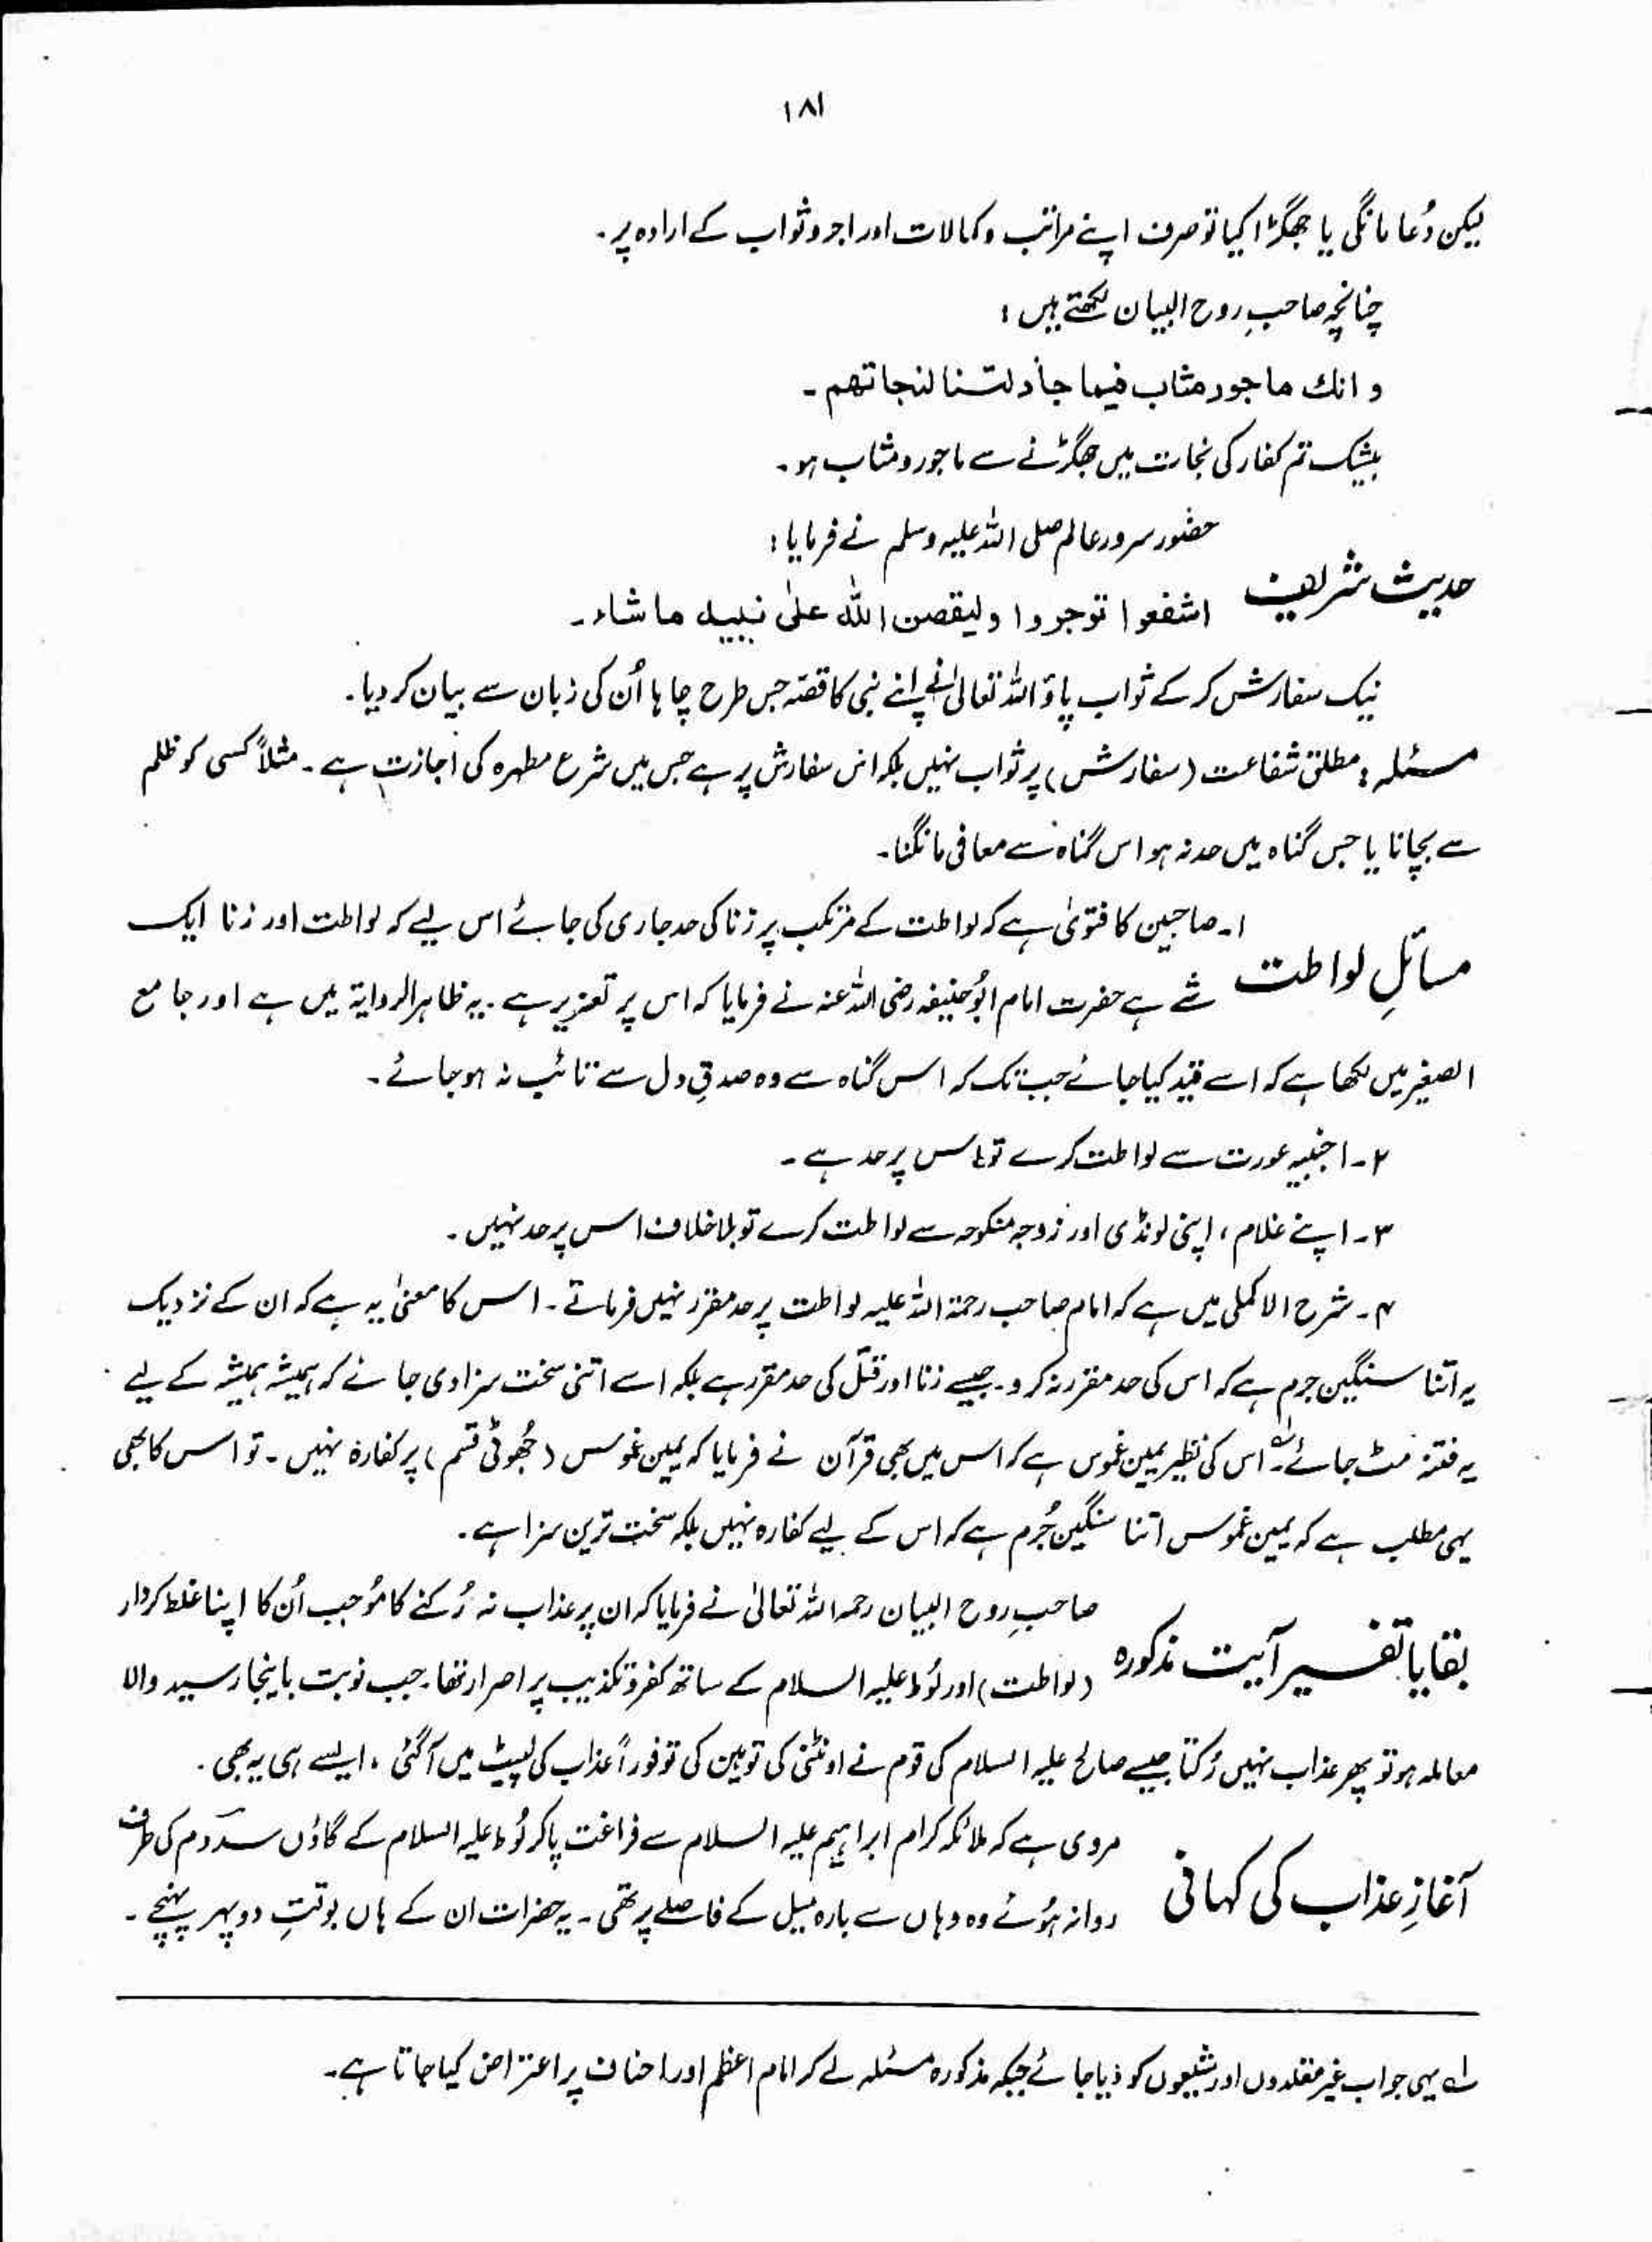 ۱۸۱
لیکن دُعا مانگی یا جھگڑا کیا تو صرف اپنے مراتب و کمالات اور اجر و ثواب کے ارادہ پر۔
چنانچہ صاحبِ روح البیان لکھتے ہیں :
و انك ماجور مثاب فيما جادلتنا لنجاتهم ۔
بیشک تم کفار کی نجات میں جھگڑنے سے ماجور و مثاب ہو۔
حضور سرورِ عالم صلی اللہ علیہ وسلم نے فرمایا :
حدیث شریف
اشفعوا توجروا وليقصن الله على نبيه ما شاء۔
نیک سفارش کر کے ثواب پاؤ اللہ تعالیٰ نے اپنے نبی کا قصّہ جس طرح چاہا اُن کی زبان سے بیان کر دیا۔
مسئلہ : مطلق شفاعت (سفارش) پر ثواب نہیں بلکہ اس سفارش پر ہے جس میں شرع مطہرہ کی اجازت ہے ۔ مثلاً کسی کو ظلم
سے بچانا یا جس گناہ میں حد نہ ہو اس گناہ سے معافی مانگنا۔
مسائلِ لواطت
۱۔ صاحبین کا فتویٰ ہے کہ لواطت کے مرتکب پر زنا کی حد جاری کی جائے اس لیے کہ لواطت اور زنا ایک
شے ہے حضرت امام ابُوحنیفہ رضی اللہ عنہ نے فرمایا کہ اس پر تعزیر ہے ۔ یہ ظاہر الروایۃ میں ہے اور جامع
الصغیر میں لکھا ہے کہ اسے قید کیا جائے جب تک کہ اس گناہ سے وہ صدقِ دل سے تائب نہ ہو جائے ۔
۲۔ اجنبیہ عورت سے لواطت کرے تو اس پر حد ہے ۔
۳۔ اپنے غلام ، اپنی لونڈی اور زوجہ منکوحہ سے لواطت کرے تو بلاخلاف اس پر حد نہیں ۔
۴۔ شرح الاکملی میں ہے کہ امام صاحب رحمۃ اللہ علیہ لواطت پر حد مقرر نہیں فرماتے ۔ اس کا معنیٰ یہ ہے کہ ان کے نزدیک
یہ اتنا سنگین جرم ہے کہ اس کی حد مقرر نہ کرو ۔ جیسے زنا اور قتل کی حد مقرر ہے بلکہ اسے اتنی سخت سزا دی جائے کہ ہمیشہ ہمیشہ کے لیے
یہ فتنہ مٹ جائے ۔ لہ اس کی نظیر یمین غموس ہے کہ اس میں بھی قرآن نے فرمایا کہ یمین غموس (جھُوٹی قسم) پر کفارہ نہیں ۔ تو اس کا بھی
یہی مطلب ہے کہ یمین غموس اتنا سنگین جُرم ہے کہ اس کے لیے کفارہ نہیں بلکہ سخت ترین سزا ہے ۔
بقایا تفسیر آیت مذکورہ
صاحبِ روح البیان رحمہ اللہ تعالیٰ نے فرمایا کہ ان پر عذاب نہ رُکنے کا مُوجب اُن کا اپنا غلط کردار
(لواطت) اور لُوط علیہ السلام کے ساتھ کفر و تکذیب پر اصرار تھا ۔ جب نوبت باینجا رسید والا
معاملہ ہو تو پھر عذاب نہیں رُکتا جیسے صالح علیہ السلام کی قوم نے اونٹنی کی توہین کی تو فوراً عذاب کی لپیٹ میں آ گئی ، ایسے ہی یہ بھی ۔
آغازِ عذاب کی کہانی
مروی ہے کہ ملائکہ کرام ابراہیم علیہ السلام سے فراغت پا کر لُوط علیہ السلام کے گاؤں سدوم کی طرف
روانہ ہُوئے وہ وہاں سے بارہ میل کے فاصلے پر تھی ۔ یہ حضرات ان کے ہاں بوقتِ دوپہر پہنچے ۔
لہ یہی جواب غیر مقلدوں اور شیعوں کو دیا جائے جبکہ مذکورہ مسئلہ لے کر امام اعظم اور احناف پر اعتراض کیا جاتا ہے۔